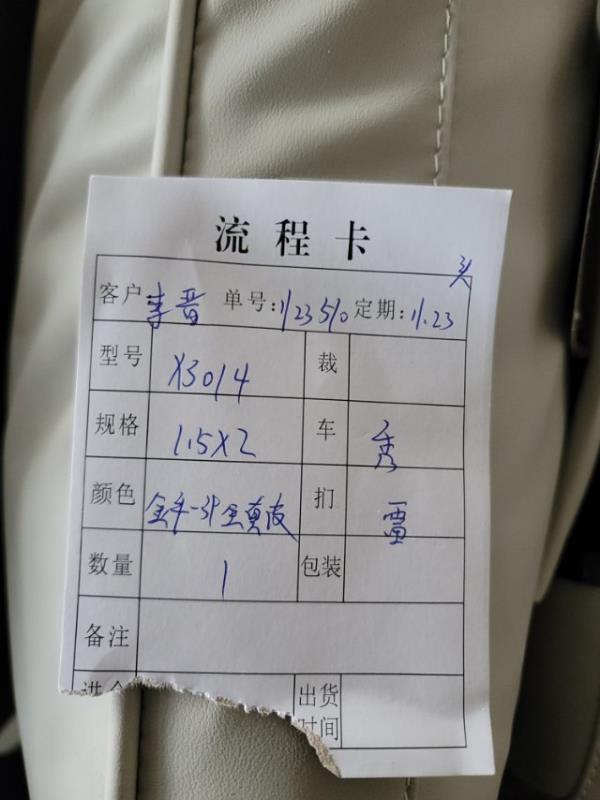 流程卡
头
客户 李晋 单号: 1123510 定期: 11.23
型号 X3014 裁
规格 1.5X2 车 秀
颜色 全真皮 扪 雷
数量 1 包装
备注
出货
时间